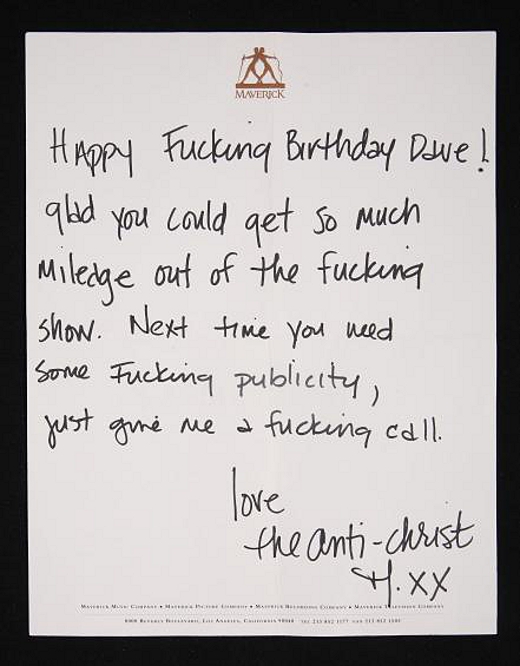 MAVERICK
HAppy Fucking Birthday Dave!
glad you could get so much
Miledge out of the fucking
show. Next time you need
some Fucking publicity,
just give me a fucking call.
love
the anti-christ
M. XX
MAVERICK MUSIC COMPANY • MAVERICK PICTURE COMPANY • MAVERICK RECORDING COMPANY • MAVERICK TELEVISION COMPANY
BEVERLY BOULEVARD, LOS ANGELES, CALIFORNIA 90048 TEL 213 852 1177 FAX 213 852